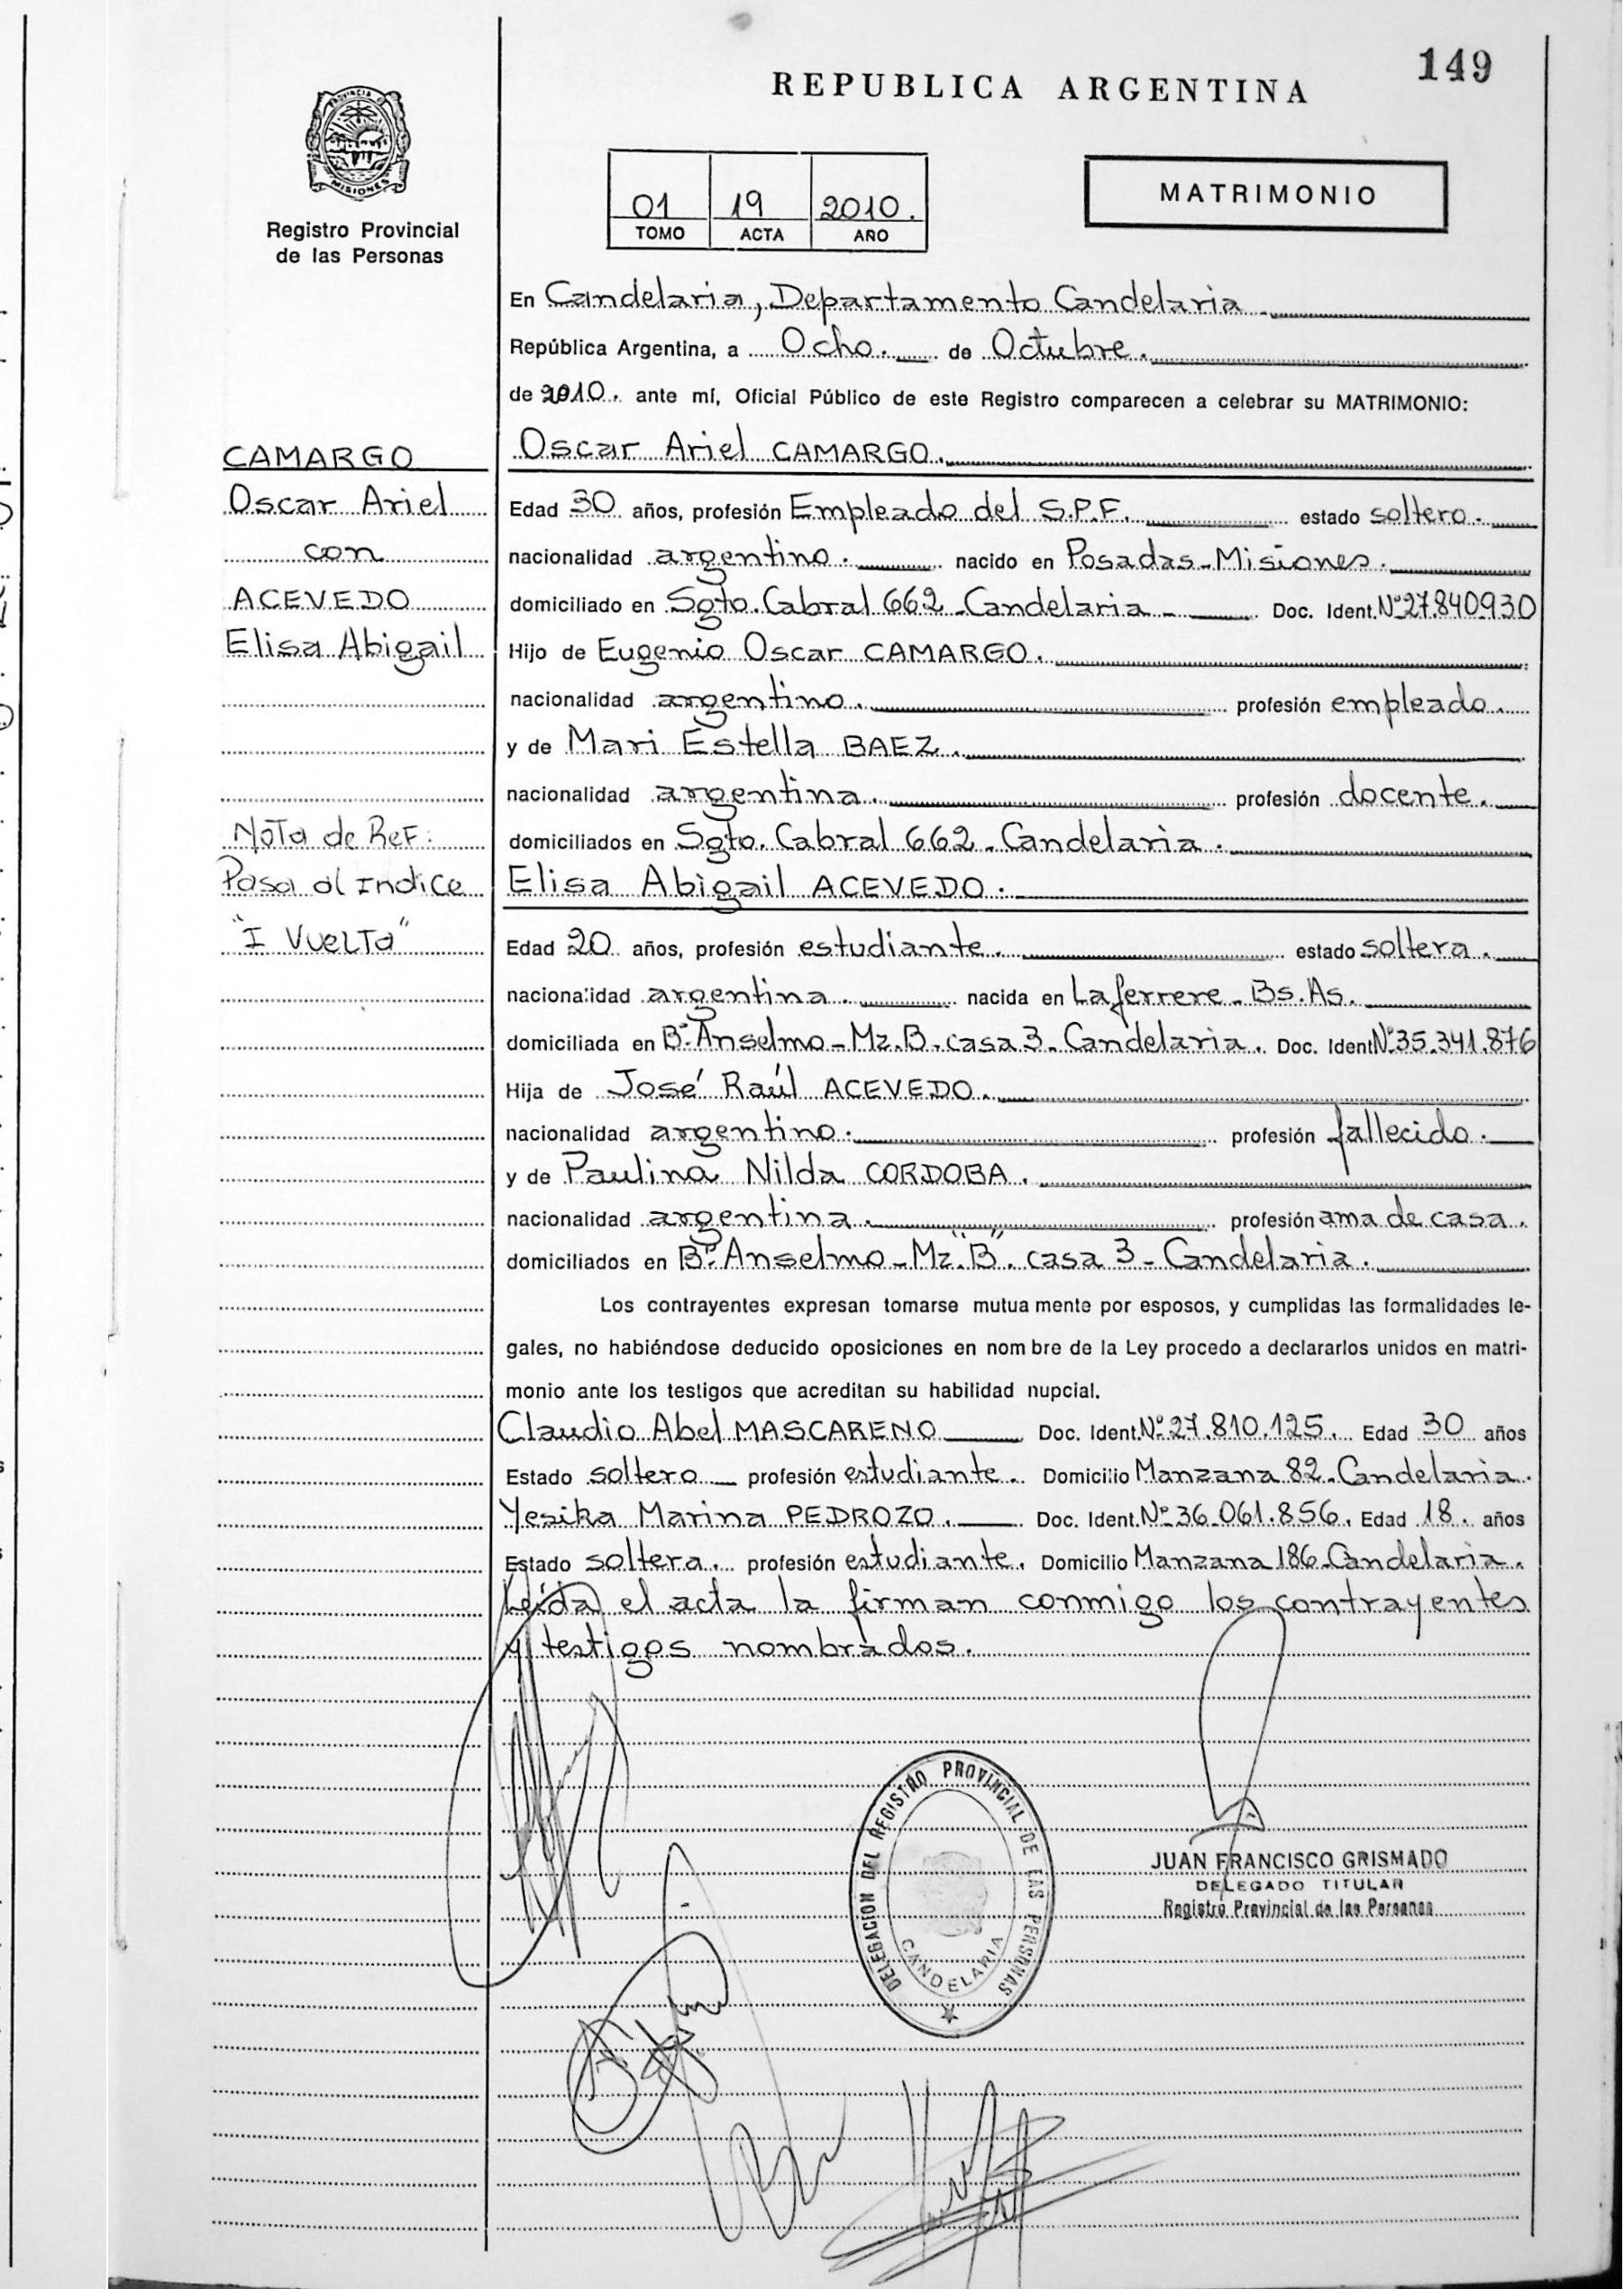 149
REPUBLICA ARGENTINA
PROVINCIA D
MISIONES
Registro Provincial
de las Personas
01 19 2010.
TOMO ACTA AÑO
MATRIMONIO
En Candelaria, Departamento Candelaria
República Argentina, a Ocho. de Octubre.
de 2010. ante mí, Oficial Público de este Registro comparecen a celebrar su MATRIMONIO:
CAMARGO
Oscar Ariel
con
ACEVEDO
Elisa Abigail
Nota de Ref:
Pasa al Indice
"I Vuelta"
Oscar Ariel CAMARGO.
Edad 30 años, profesión Empleado del S.P.F. estado soltero.
nacionalidad argentino. nacido en Posadas-Misiones.
domiciliado en Sgto. Cabral 662-Candelaria- Doc. Ident. Nº27.840930
Hijo de Eugenio Oscar CAMARGO.
nacionalidad argentino. profesión empleado.
y de Mari Estella BAEZ.
nacionalidad argentina. profesión docente.
domiciliados en Sgto. Cabral 662. Candelaria.
Elisa Abigail ACEVEDO.
Edad 20 años, profesión estudiante. estado soltera.
nacionalidad argentina. nacida en Laferrere-Bs.As.
domiciliada en Bº Anselmo-Mz.B.casa 3-Candelaria. Doc. Ident Nº35.341.876
Hija de José Raúl ACEVEDO.
nacionalidad argentino. profesión fallecido.
y de Paulina Nilda CORDOBA.
nacionalidad argentina. profesión ama de casa.
domiciliados en Bº Anselmo-Mz."B". casa 3-Candelaria.
Los contrayentes expresan tomarse mutuamente por esposos, y cumplidas las formalidades le-
gales, no habiéndose deducido oposiciones en nombre de la Ley procedo a declararlos unidos en matri-
monio ante los testigos que acreditan su habilidad nupcial.
Claudio Abel MASCARENO Doc. Ident. Nº27.810.125. Edad 30 años
Estado soltero profesión estudiante. Domicilio Manzana 82-Candelaria.
Yesika Marina PEDROZO. Doc. Ident. Nº36.061.856. Edad 18. años
Estado soltera. profesión estudiante. Domicilio Manzana 186-Candelaria.
Leída el acta la firman conmigo los contrayentes
y testigos nombrados.
DELEGACION DEL REGISTRO PROVINCIAL DE LAS PERSONAS
CANDELARIA
JUAN FRANCISCO GRISMADO
DELEGADO TITULAR
Registro Provincial de las Personas